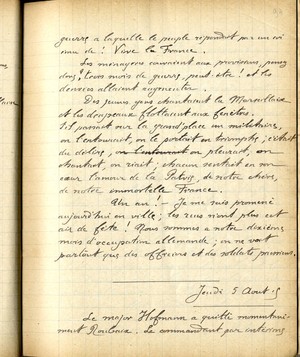 guerre à laquelle le peuple répondait par un cri
ému de ! Vive la France.
Les ménagères couraient aux provisions, pensez
donc ! trois mois de guerre, peut-être ! et les
denrées allaient augmenter.
Des jeunes gens chantaient la Marseillaise
et les drapeaux flottaient aux fenêtres.
S'il passait sur la grand'place un militaire,
on l'entourait, on le portait en triomphe ; c'était
du délire, on pleurait, on
chantait, on riait ; chacun sentait en son
cœur l'amour de la Patrie, de notre chère,
de notre immortelle France.
Un an ! — Je me suis promené
aujourd'hui en ville ; les rues n'ont plus cet
air de fête ! Nous sommes à notre dixième
mois d'occupation allemande ; on ne voit
partout que des officiers et des soldats prussiens.
Jeudi 5 Août 15
Le major Hofmann a quitté momentané-
ment Roubaix. Le commandant par intérim